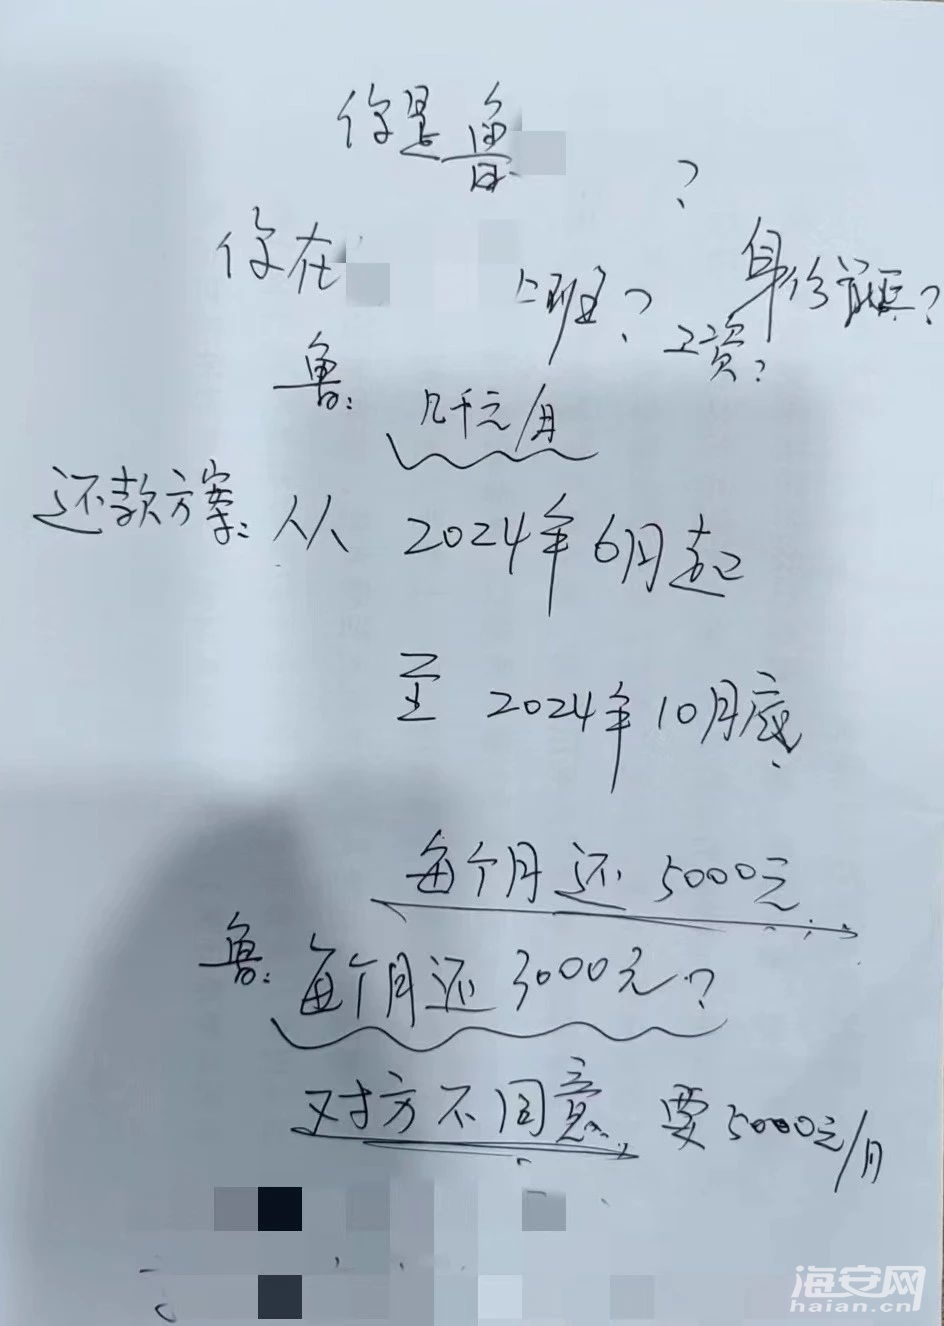 你是鲁
?
你在
上班? 工资? 身份证?
鲁:
几千元/月
还款方案: 从 2024年6月起
至 2024年10月底
每个月还 5000元
鲁: 每个月还 3000元?
对方不同意 要5000元/月
海安网
haian.cn